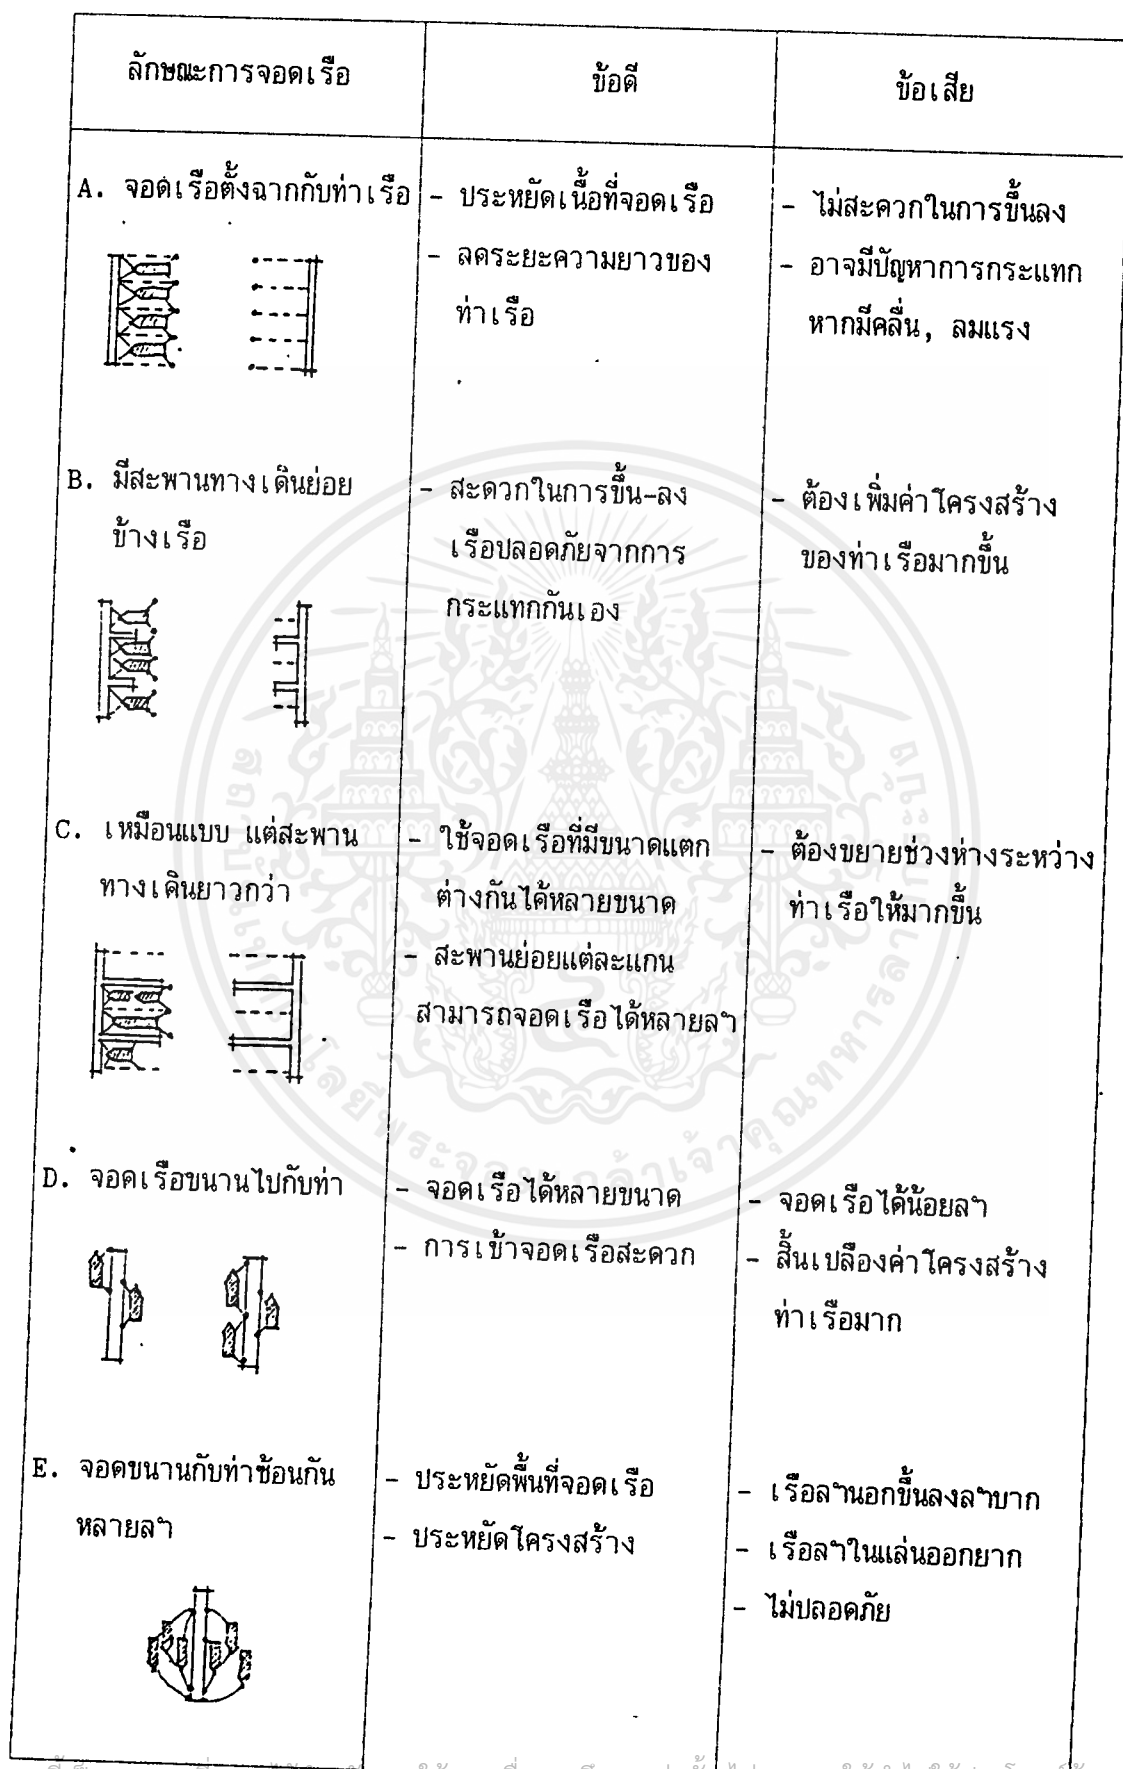 ลักษณะการจอดเรือ
ข้อดี
ข้อเสีย
A. จอดเรือตั้งฉากกับท่าเรือ
- ประหยัดเนื้อที่จอดเรือ
- ลดระยะความยาวของ
ท่าเรือ
- ไม่สะดวกในการขึ้นลง
- อาจมีปัญหาการกระแทก
หากมีคลื่น, ลมแรง
B. มีสะพานทางเดินย่อย
ข้างเรือ
- สะดวกในการขึ้น-ลง
เรือปลอดภัยจากการ
กระแทกกันเอง
- ต้องเพิ่มค่าโครงสร้าง
ของท่าเรือมากขึ้น
C. เหมือนแบบ แต่สะพาน
ทางเดินยาวกว่า
- ใช้จอดเรือที่มีขนาดแตก
ต่างกันได้หลายขนาด
- สะพานย่อยแต่ละแกน
สามารถจอดเรือได้หลายลำ
- ต้องขยายช่วงห่างระหว่าง
ท่าเรือให้มากขึ้น
D. จอดเรือขนานไปกับท่า
- จอดเรือได้หลายขนาด
- การเข้าจอดเรือสะดวก
- จอดเรือได้น้อยลำ
- สิ้นเปลืองค่าโครงสร้าง
ท่าเรือมาก
E. จอดขนานกับท่าซ้อนกัน
หลายลำ
- ประหยัดพื้นที่จอดเรือ
- ประหยัดโครงสร้าง
- เรือลำนอกขึ้นลงลำบาก
- เรือลำในแล่นออกยาก
- ไม่ปลอดภัย